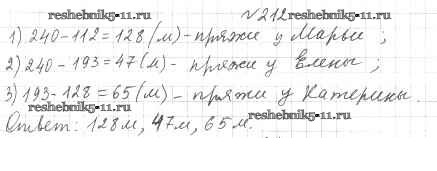 reshebnik5-11.ru №212 reshebnik5-11.ru
1) 240-112=128 (м) - пряжи у Марьи ;
2) 240 - 193 = 47 (м) - пряжи у Елены ;
3) 193-128 = 65 (м) - пряжи у Катерины.
reshebnik5-11.ru reshebnik5-11.ru
Ответ: 128 м, 47 м, 65 м.